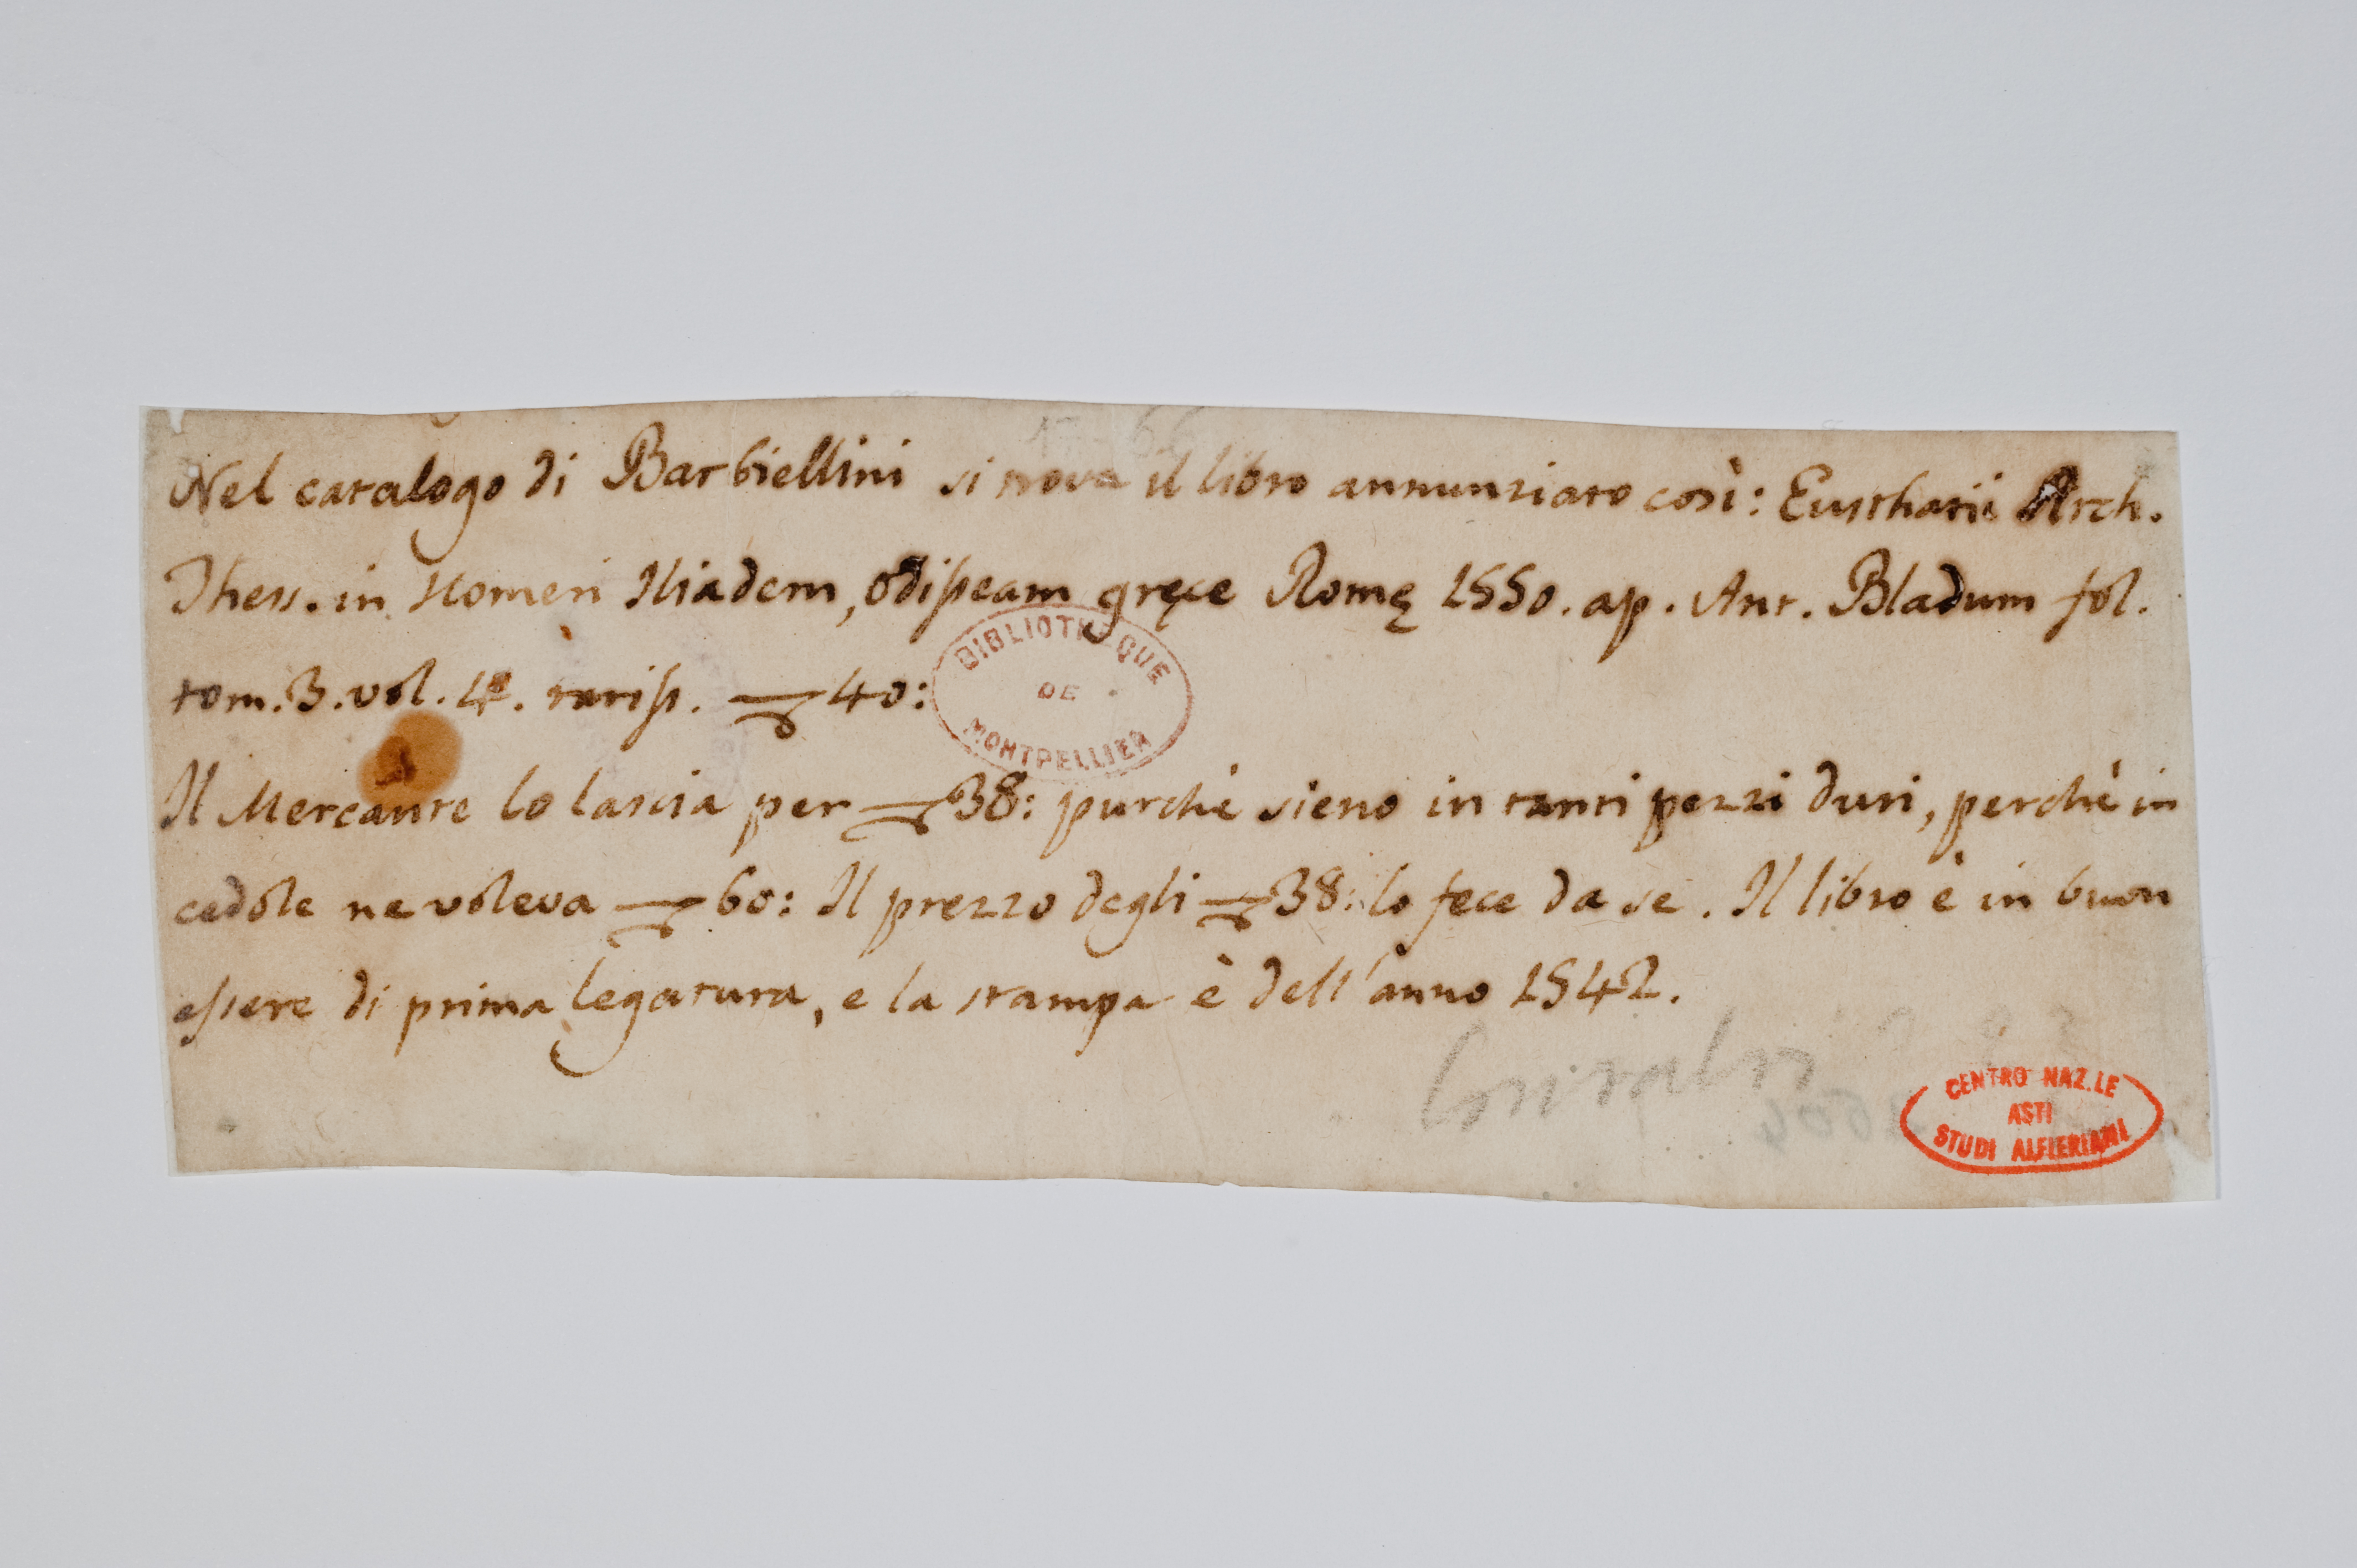 Nel catalogo di Barbiellini si trova il libro annunziato così: Eusthatii Arch.
Thess. in Homeri Iliadem, odisseam gręce Romę 1550. ap. Ant. Bladum fol.
tom. 3. vol. 4. rariss. 40:
BIBLIOTHEQUE
DE
MONTPELLIER
Il Mercante lo lascia per 38: purchè sieno in tanti pezzi duri, perchè in
cedole ne voleva 60: Il prezzo degli 38: lo fece da se. Il libro è in buon
essere di prima legatura, e la stampa è dell'anno 1542.
CENTRO NAZ.LE
ASTI
STUDI ALFIERIANI